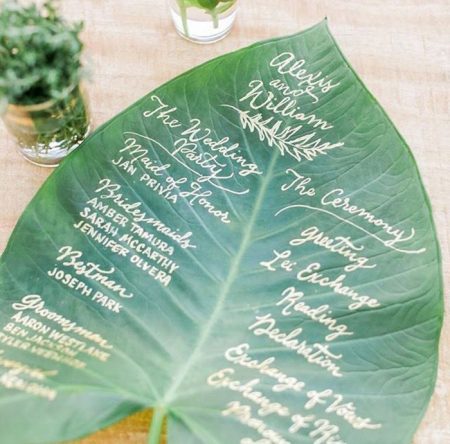 Alexis
and
William
The Wedding
Party
Maid of Honor
JAN PRIVIA
Bridesmaids
AMBER TAMURA
SARAH MCCARTHY
JENNIFER OLVERA
Bestman
JOSEPH PARK
Groomsman
AARON WESTLAKE
BEN JACKSON
The Ceremony
Greeting
Lei Exchange
Reading
Declaration
Exchange of Vows
Exchange of